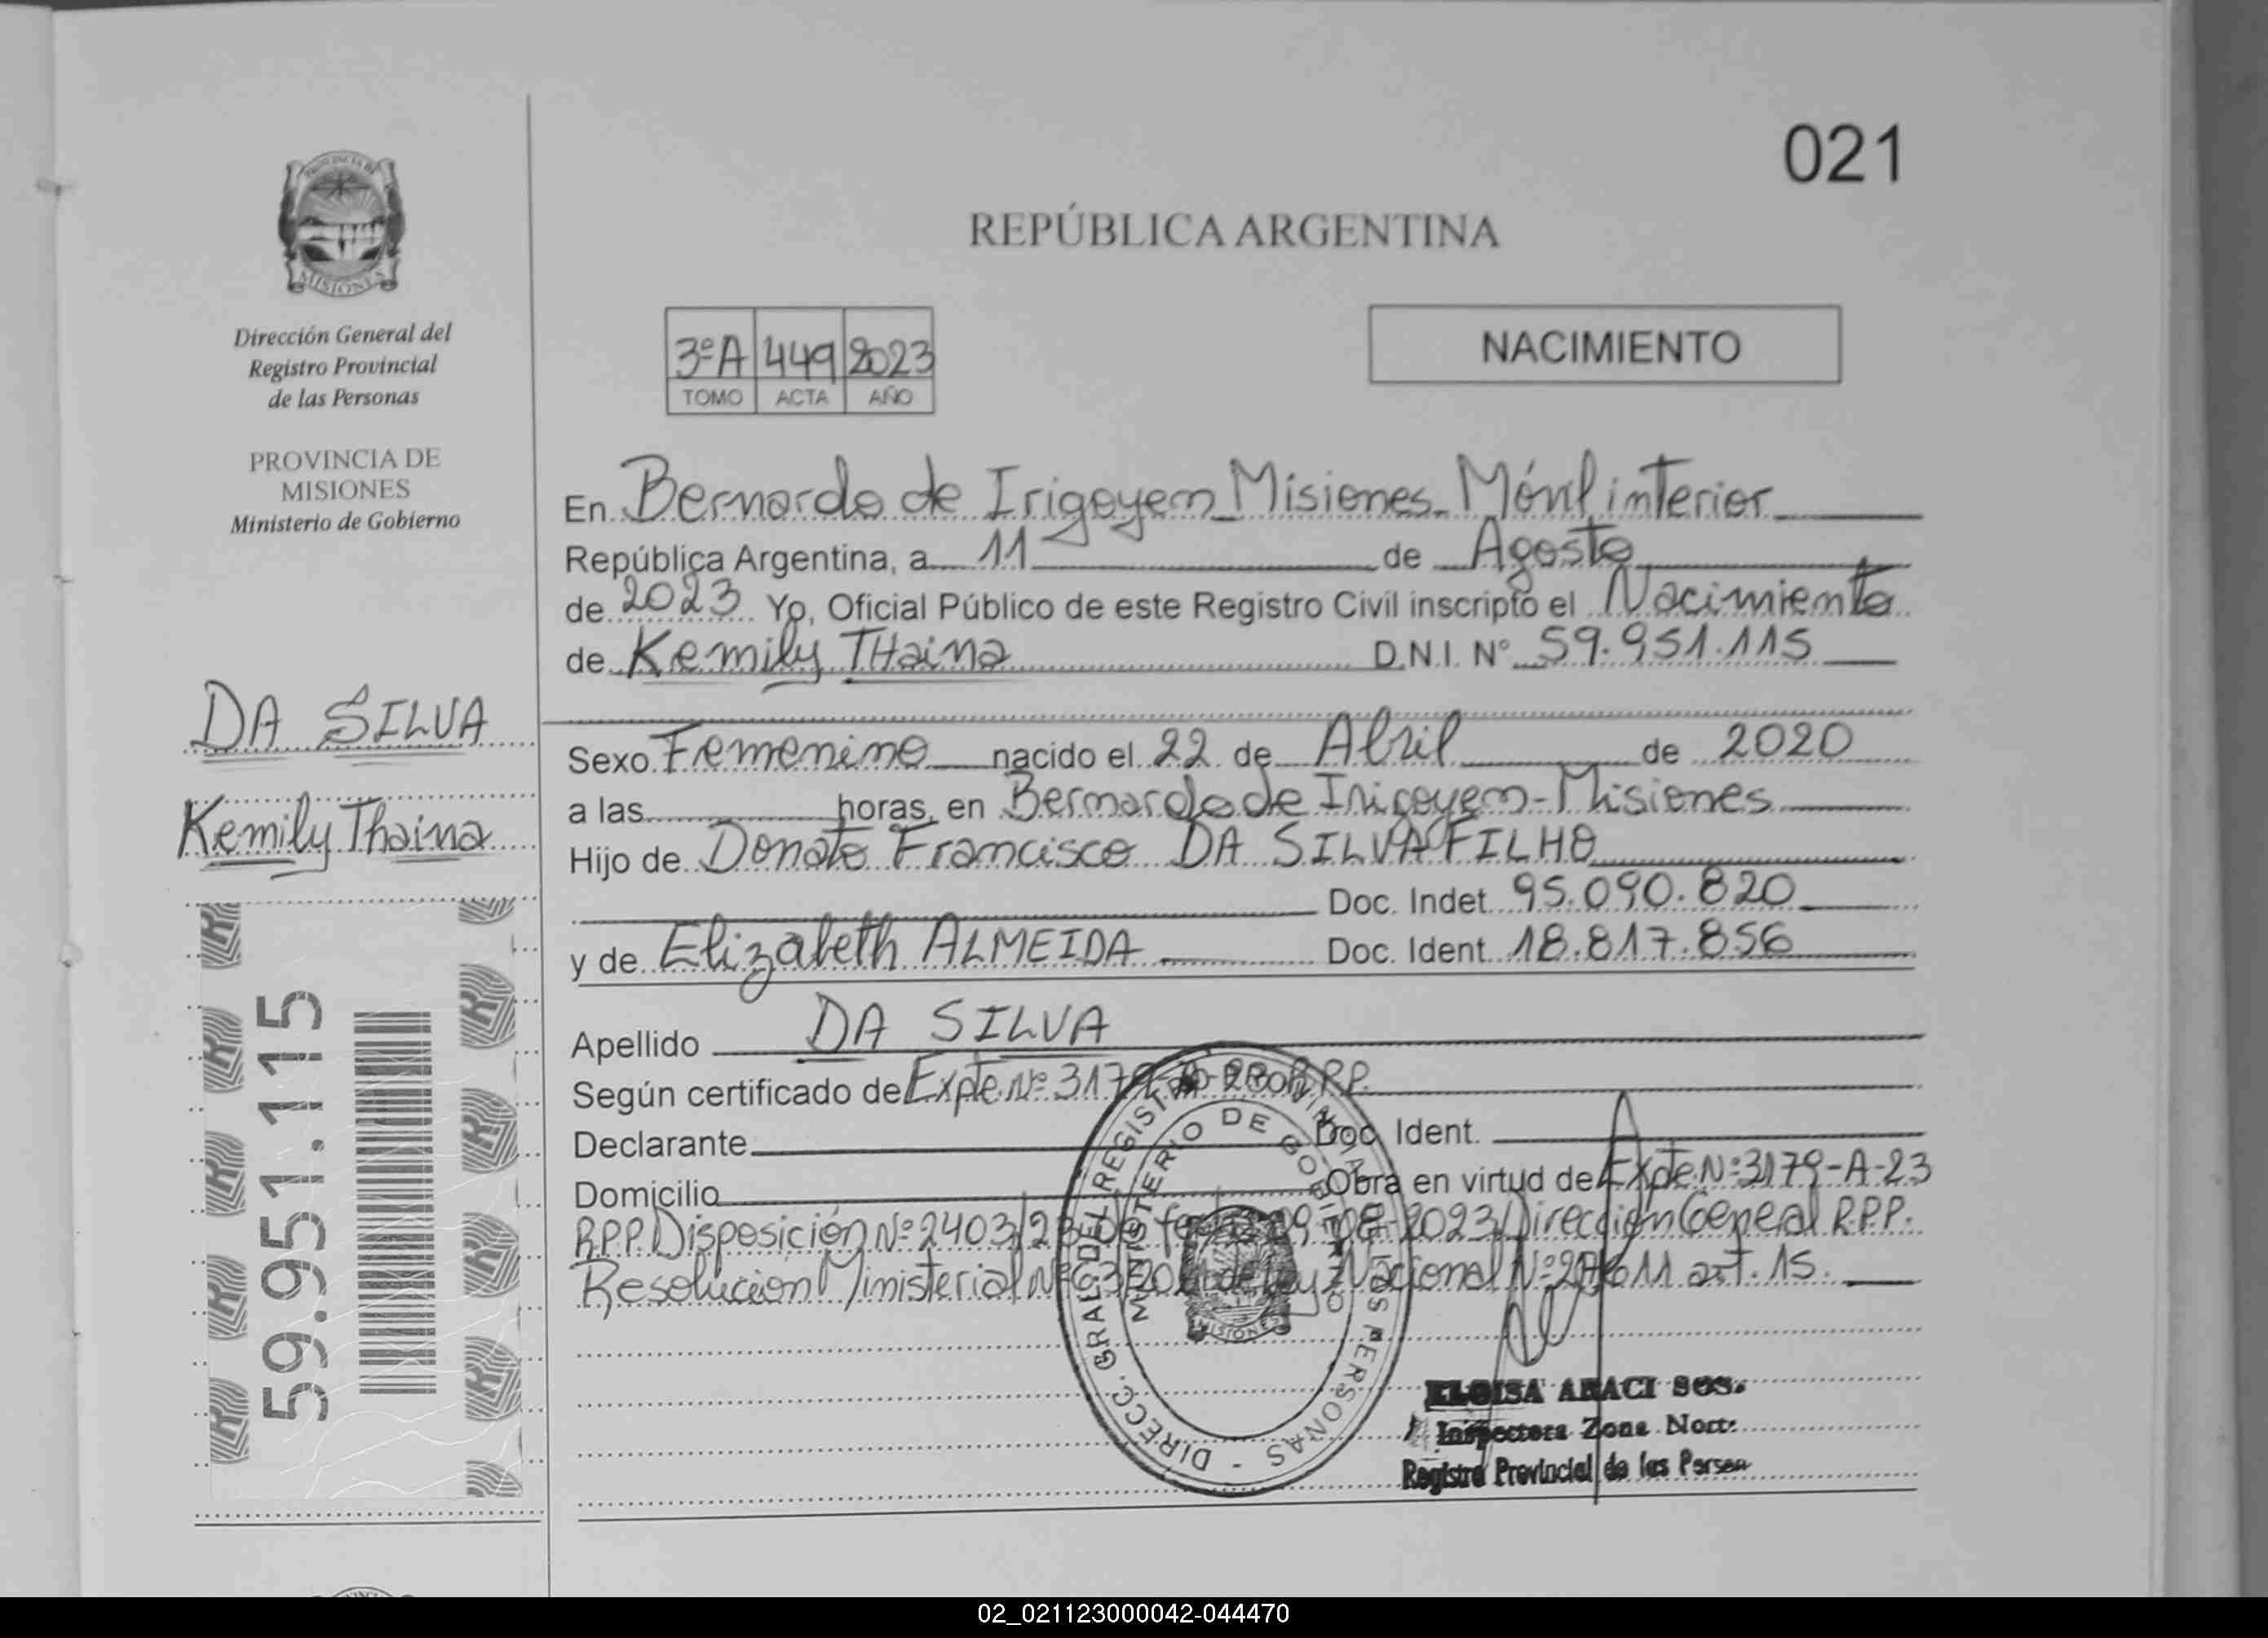 021
PROVINCIA DE
MISIONES
Dirección General del
Registro Provincial
de las Personas
PROVINCIA DE
MISIONES
Ministerio de Gobierno
DA SILVA
Kemily Thaina
59.951.115
REPÚBLICA ARGENTINA
3ºA 449 2023
TOMO ACTA AÑO
NACIMIENTO
En Bernardo de Irigoyen Misiones. Móvil interior
República Argentina, a 11 de Agosto
de 2023 Yo, Oficial Público de este Registro Civil inscripto el Nacimiento
de Kemily THaina D.N.I. N° 59.951.115
Sexo Femenino nacido el 22 de Abril de 2020
a las horas, en Bernardo de Irigoyen - Misiones
Hijo de Donato Francisco DA SILVA FILHO
Doc. Indet. 95.090.820
y de Elizabeth ALMEIDA Doc. Ident. 18.817.856
Apellido DA SILVA
Según certificado de Expte Nº 3179 R.P.P.
Declarante Doc. Ident.
Domicilio Obra en virtud de Expte Nº 3179-A-23
R.P.P. Disposición Nº 2403/23 de fecha 09-08-2023 Dirección General R.P.P.
Resolución Ministerial de Ley Nacional art. 15.
DIRECC. GRAL. DEL REGISTRO PROVINCIAL DE LAS PERSONAS -
MINISTERIO DE GOBIERNO
MISIONES
ELOISA ARACI SOS.
Inspectora Zona Norte
Registro Provincial de las Person
02_021123000042-044470